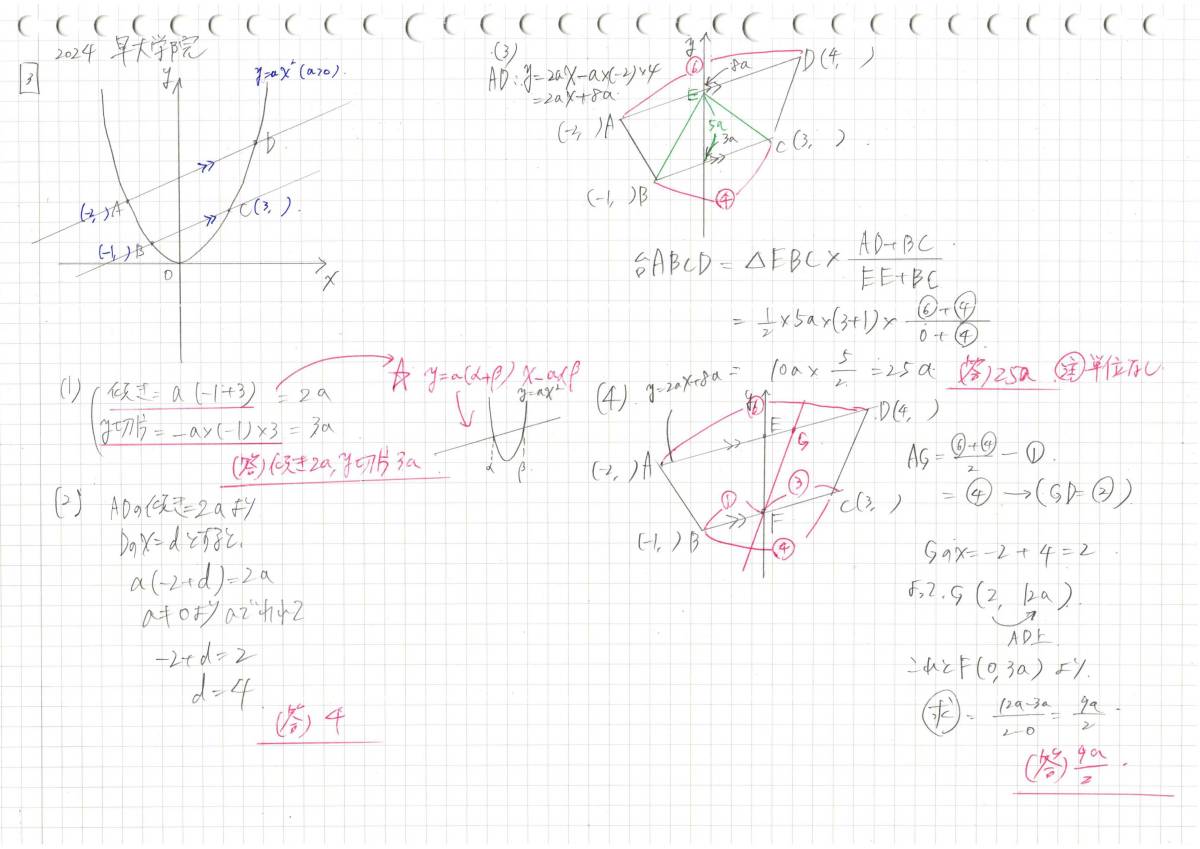 2024 早大学院
3
y
y=ax² (a>0).
D
(-2, ) A
C(3, ).
(-1, ) B
O
x
(1)
傾き = a(-1+3) = 2a
y切片 = -a×(-1)×3 = 3a
☆ y=a(α+β)x-aαβ
y=ax²
α
β
(答) 傾き2a, y切片3a
(2) ADの傾き=2aより
Dのx=dとすると、
a(-2+d)=2a
a≠0よりaでわって
-2+d=2
d=4
(答) 4
(3)
AD: y=2ax-a×(-2)×4
=2ax+8a
y
⑥
8a
D(4, )
E
(-2, ) A
5a
3a
C(3, )
(-1, ) B
④
台ABCD = △EBC × AD+BC / EE+BC
= 1/2 ×5a×(3+1)× ⑥+④ / 0+④
= 10a × 5/2 = 25a
(答) 25a 注 単位なし
(4)
y=2ax+8a
y
⑥
D(4, )
E
G
(-2, ) A
①
③
C(3, )
F
(-1, ) B
④
AG = ⑥+④ / 2 - ①
= ④ → (GD=②)
Gのx=-2+4=2
よって、G(2, 12a).
AD上
これとF(0, 3a)より
求 = 12a-3a / 2-0 = 9a / 2
(答) 9a / 2